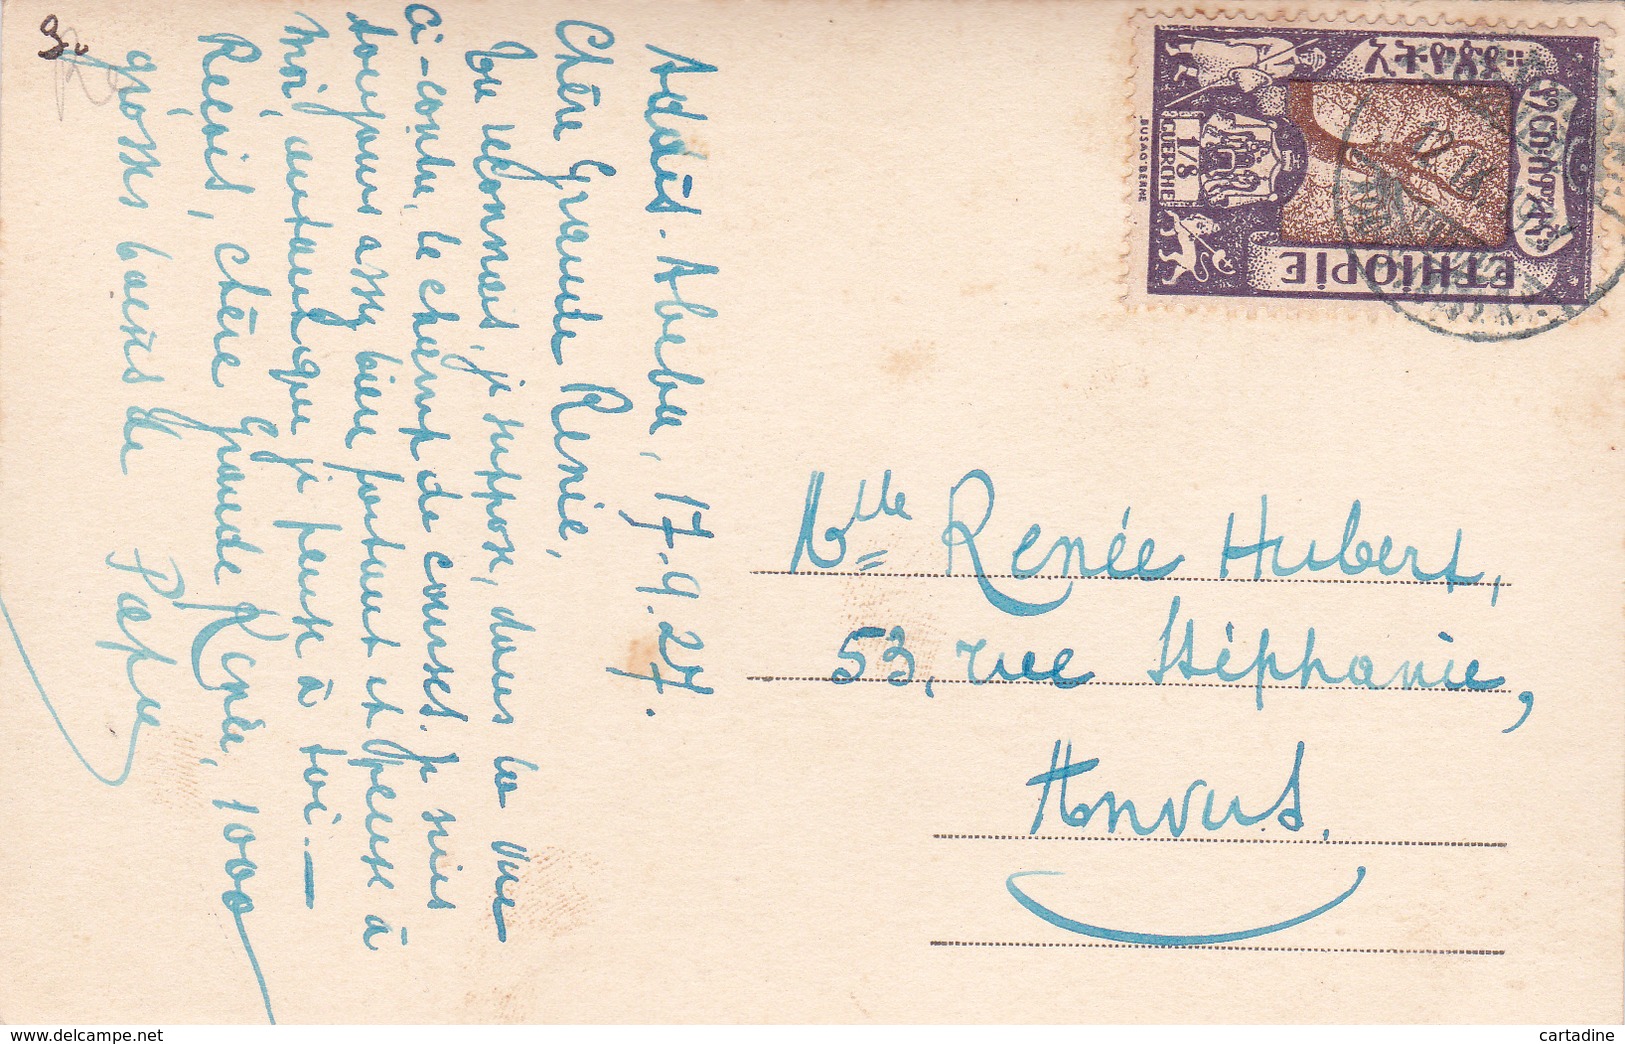 Addis-Abeba, 17-9.27.
Chère Grande Renée,
Tu reconnais, je suppose, dans la vue
ci-contre, le champ de courses. Je suis
toujours assez bien portant et pense à
moi, autant que je pense à toi. —
Reçois, chère grande Renée, 1000
gros baisers de
Papa
ኢትዮጵያ።
ETHIOPIE
1/8
GUERCHE
BUSAG BERNE
Mlle Renée Hubert,
53, rue Stéphanie,
Anvers.
www.delcampe.net
cartadine